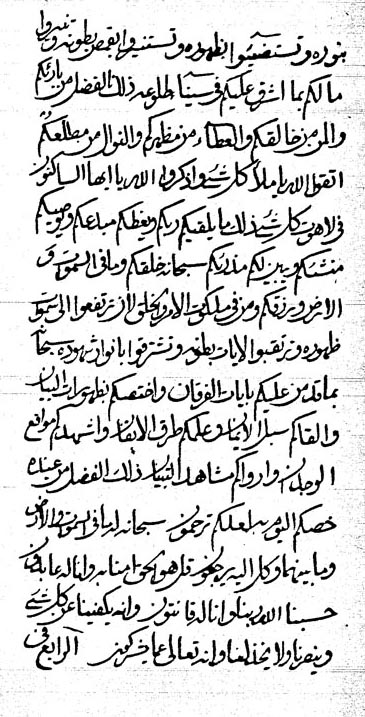 بنوره و تستضيئوا بظهوره و تستنيروا بقمص بطونه و تنيروا
ما لكم بما اشرق عليكم فى سيناء طلوعه ذلك الفضل من بارئكم
والمن من خالقكم والعطاء من مظهركم والنوال من مطلعكم
اتقوا الله يا ملأ كل شئ واذكروا الله يا ايها الساكنون
فى لاهوت كل شئ ذلك ما يلقيكم ربكم ويعظكم مبدعكم ويوصيكم
منشئكم ويبين لكم مذركم سبحانه خلقكم وما فى السموات و
الارض ورزقكم ومن فى ملكوت الامر والخلق لان ترتفعوا الى سموات
ظهوره و ترتقبوا الايات بطونه و تشرفوا بانوار شهوده سبحانه
بما قد من عليكم بايات الفرقان واختصكم بظهورات البيان
والقاكم سبل الايمان وعلمكم طرق الايقان واشهدكم مواقع
الوجدان وارواكم مشاهد التبيان ذلك الفضل من عنده
خصكم اليوم به لعلكم ترحمون سبحانه له ما فى السموات والارض
وما بينهما وكل اليه يرجعون قل هو الحق امنا به وانا له عابدون
حسبنا الله ربنا وانا له قانتون وانه يكفينا عن كل شئ
وينصرنا ولا يخذلنا وانه تعالى عما يذكرون الرابع فى